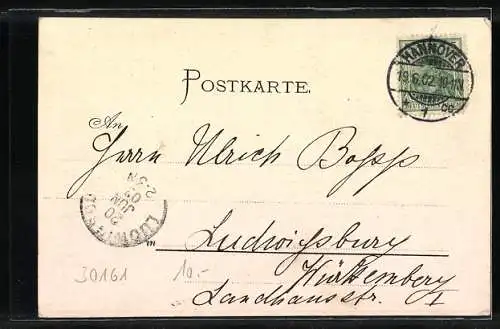 HANNOVER
19.6.02. 10-11N
POSTKARTE.
An
Herrn Ulrich Bopp
LUDWIGSBURG
20
JUN
02
2-3N
in
Ludwigsburg
Württemberg
Landhausstr. 1
30161
10.-